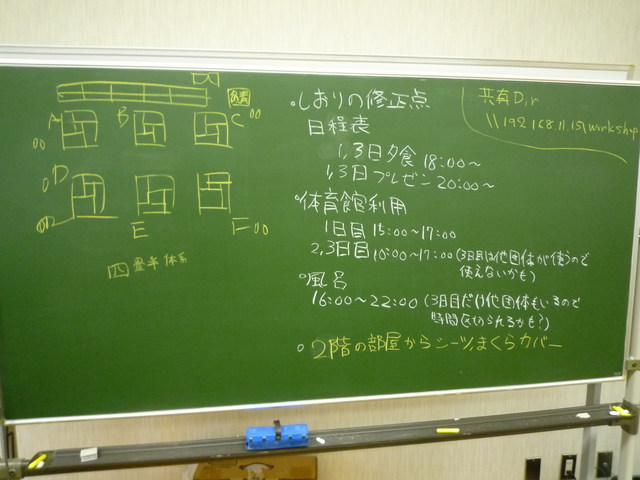 A
B
C
D
E
F
四畳半体系
。しおりの修正点
日程表
1,3日夕食 18:00～
1,3日プレゼン 20:00～
。体育館利用
1日目 15:00～17:00
2,3日目 10:00～17:00 (3日目は他団体が使うので
使えないかも)
。風呂
16:00～22:00 (3日目だけ他団体もいるので
時間区切られるかも?)
。2階の部屋からシーツ,まくらカバー
共有Dir
\\192.168.11.15\workshop